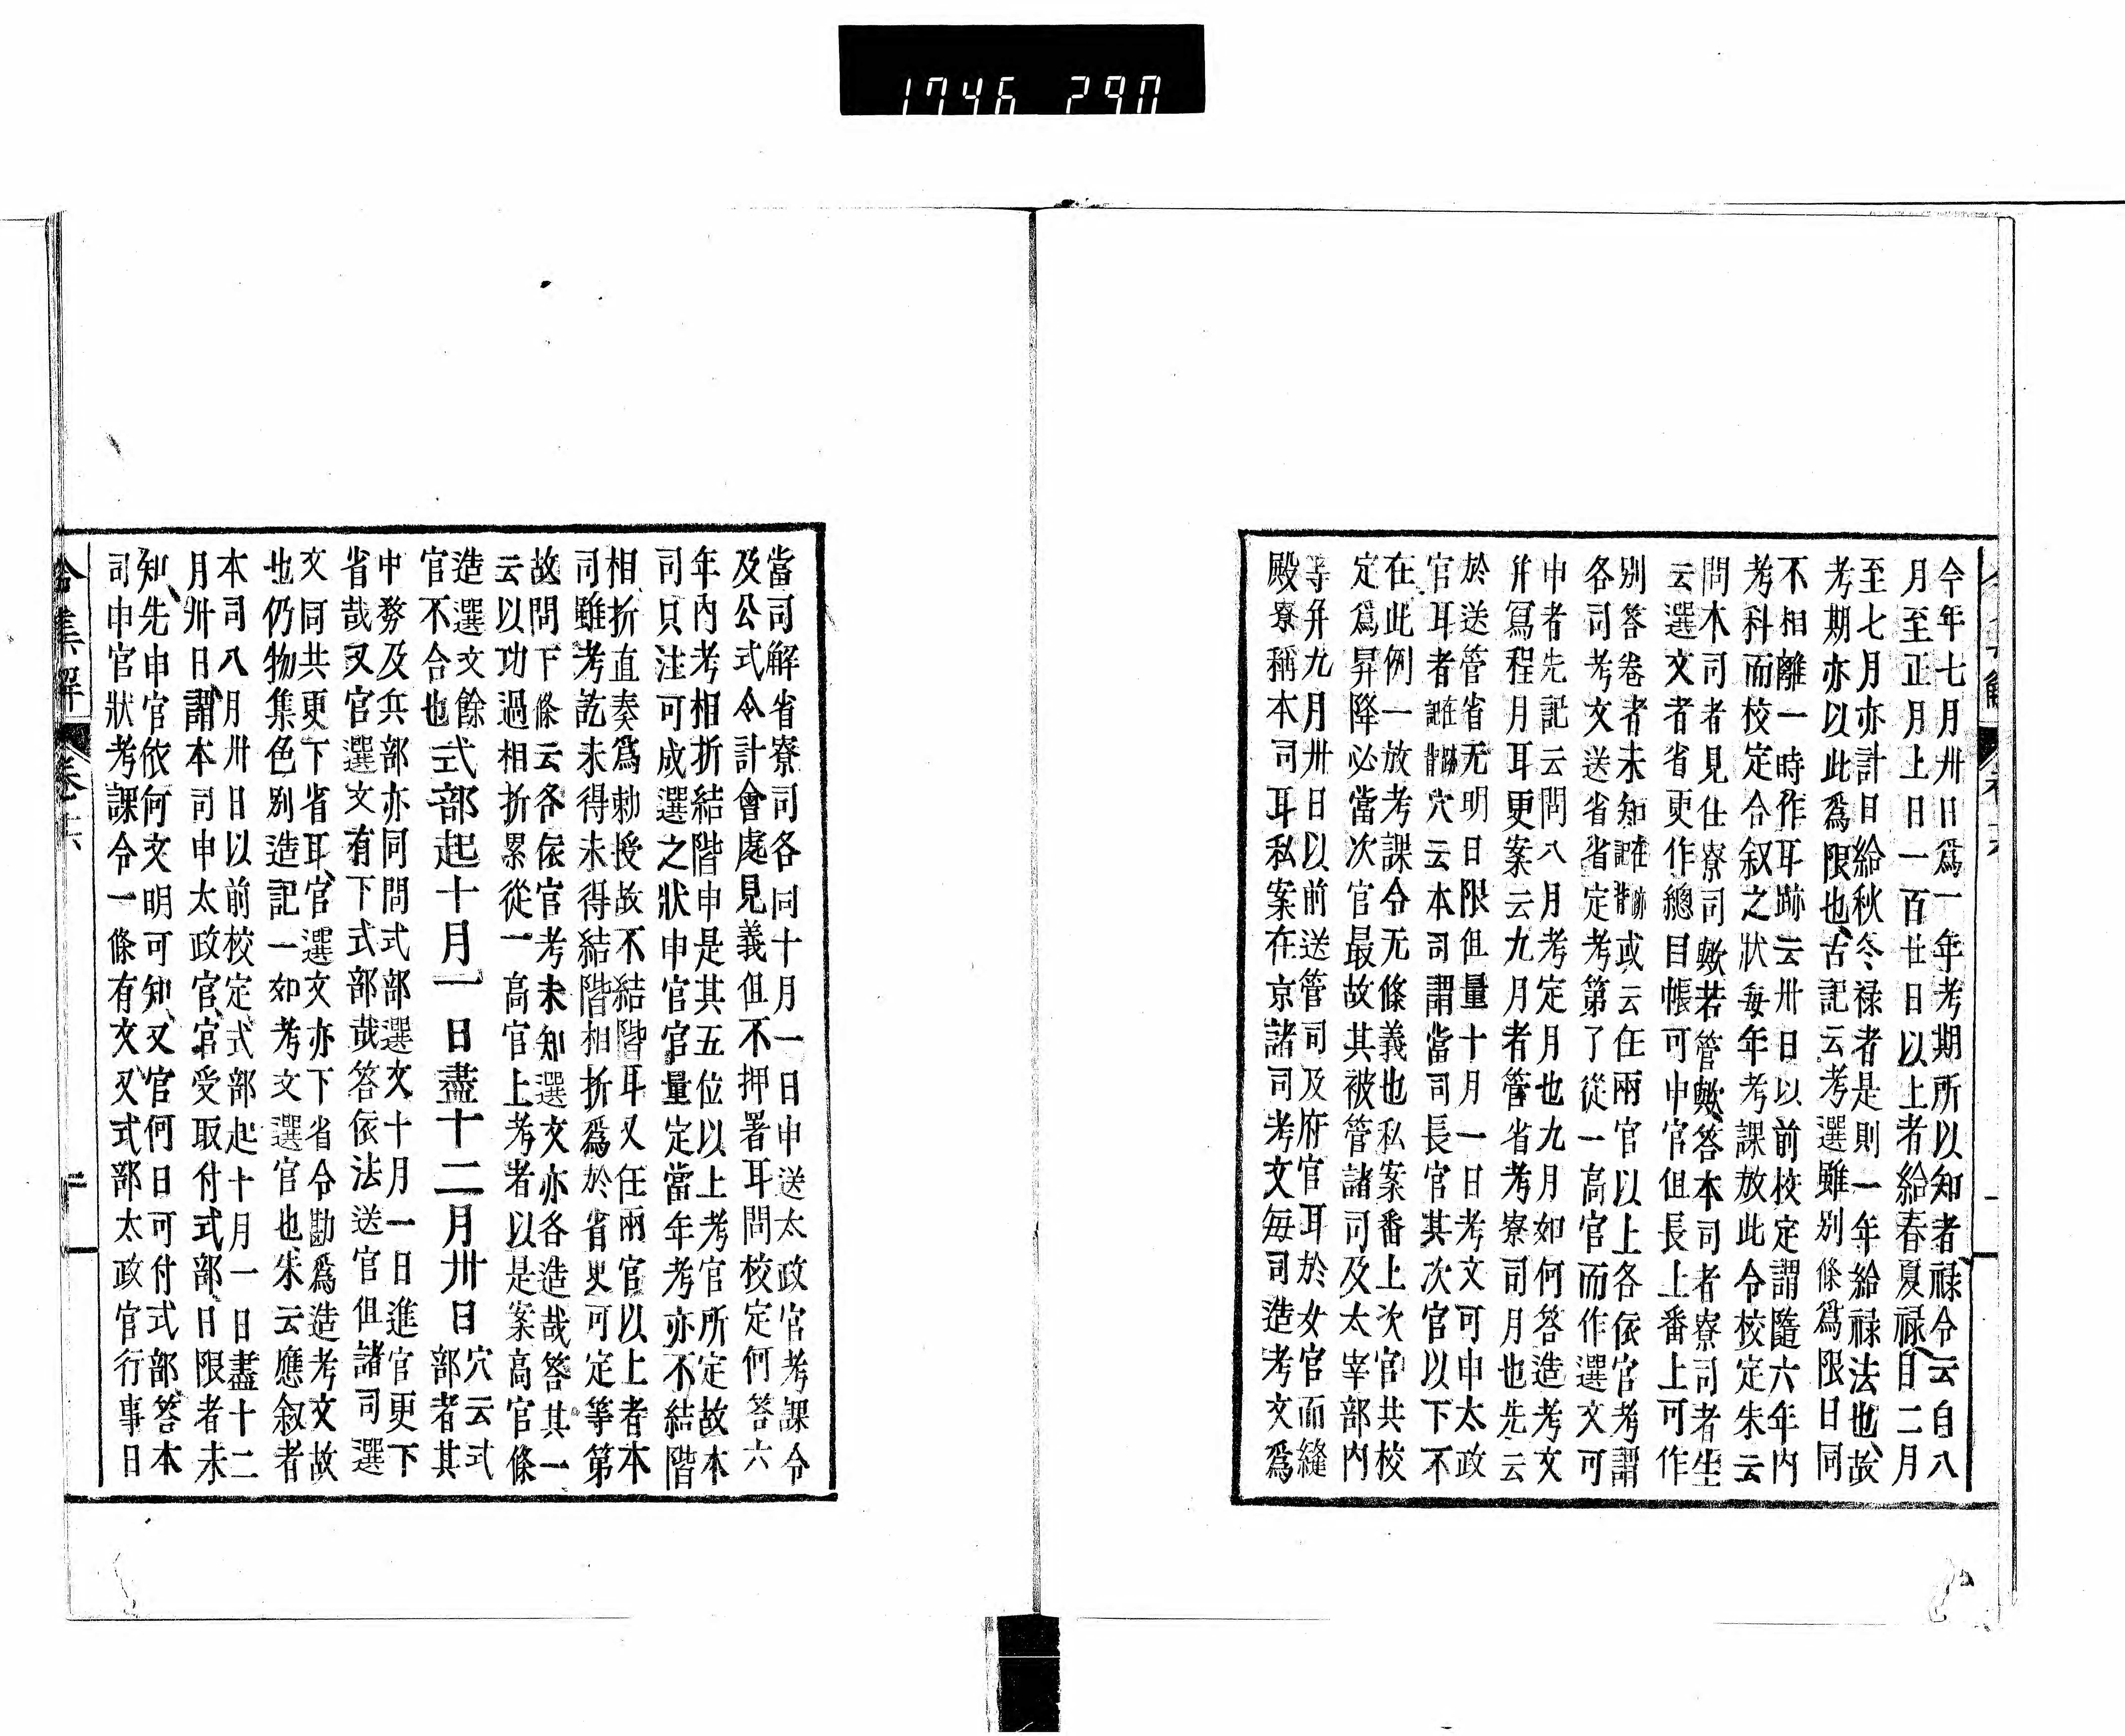 1746 290
今年七月卅日爲一年考期所以知者祿令云自八
月至正月上日一百廿日以上者給春夏祿自二月
至七月亦計日給秋冬祿者是則一年給祿法也故
考期亦以此爲限也古記云考選雖別條爲限日同
不相離一時作耳跡云卅日以前校定謂隨六年內
考科而校定合叙之狀每年考課放此令校定朱云
問本司者見仕寮司歟若管歟答本司者寮司者生
云選文者省更作總目帳可申官但長上番上可作
別答卷者未知或云任兩官以上各依官考謂
各司考文送省省定考第了從一高官而作選文可
申者先記云問八月考定月也九月如何答造考文
幷寫程月耳更案云九月者管省考寮司月也先云
於送管省无明日限但量十月一日考文可申太政
官耳者穴云本司謂當司長官其次官以下不
在此例一放考課令无條義也私案番上次官共校
定爲昇降必當次官最故其被管諸司及太宰部內
等幷九月卅日以前送管司及府官耳於女官而縫
殿寮稱本司耳私案在京諸司考文每司造考文爲
當司解省寮司各同十月一日申送太政官考課令
及公式令計會處見義但不押署耳問校定何答六
年內考相折結階申是其五位以上考官所定故本
司只注可成選之狀申官官量定當年考亦不結階
相折直奏爲勅授故不結階耳又任兩官以上者本
司雖考訖未得未得結階相折爲於省更可定等第
故問下條云各依官考未知選文亦各造哉答其一
云以功過相折累從一高官上考者以是案高官條
造選文餘
官不合也
式部起十月一日盡十二月卅日
穴云式
部者其
中務及兵部亦同問式部選文十月一日進官更下
省哉又官選文有下式部哉答依法送官但諸司選
文同共更下省耳官選文亦下省令勘爲造考文故
也仍物集色別造記一如考文選官也朱云應叙者
本司八月卅日以前校定式部起十月一日盡十二
月卅日謂本司申太政官官受取付式部日限者未
知先申官依何文明可知又官何日可付式部答本
司申官狀考課令一條有文又式部太政官行事日
令集解
卷十六